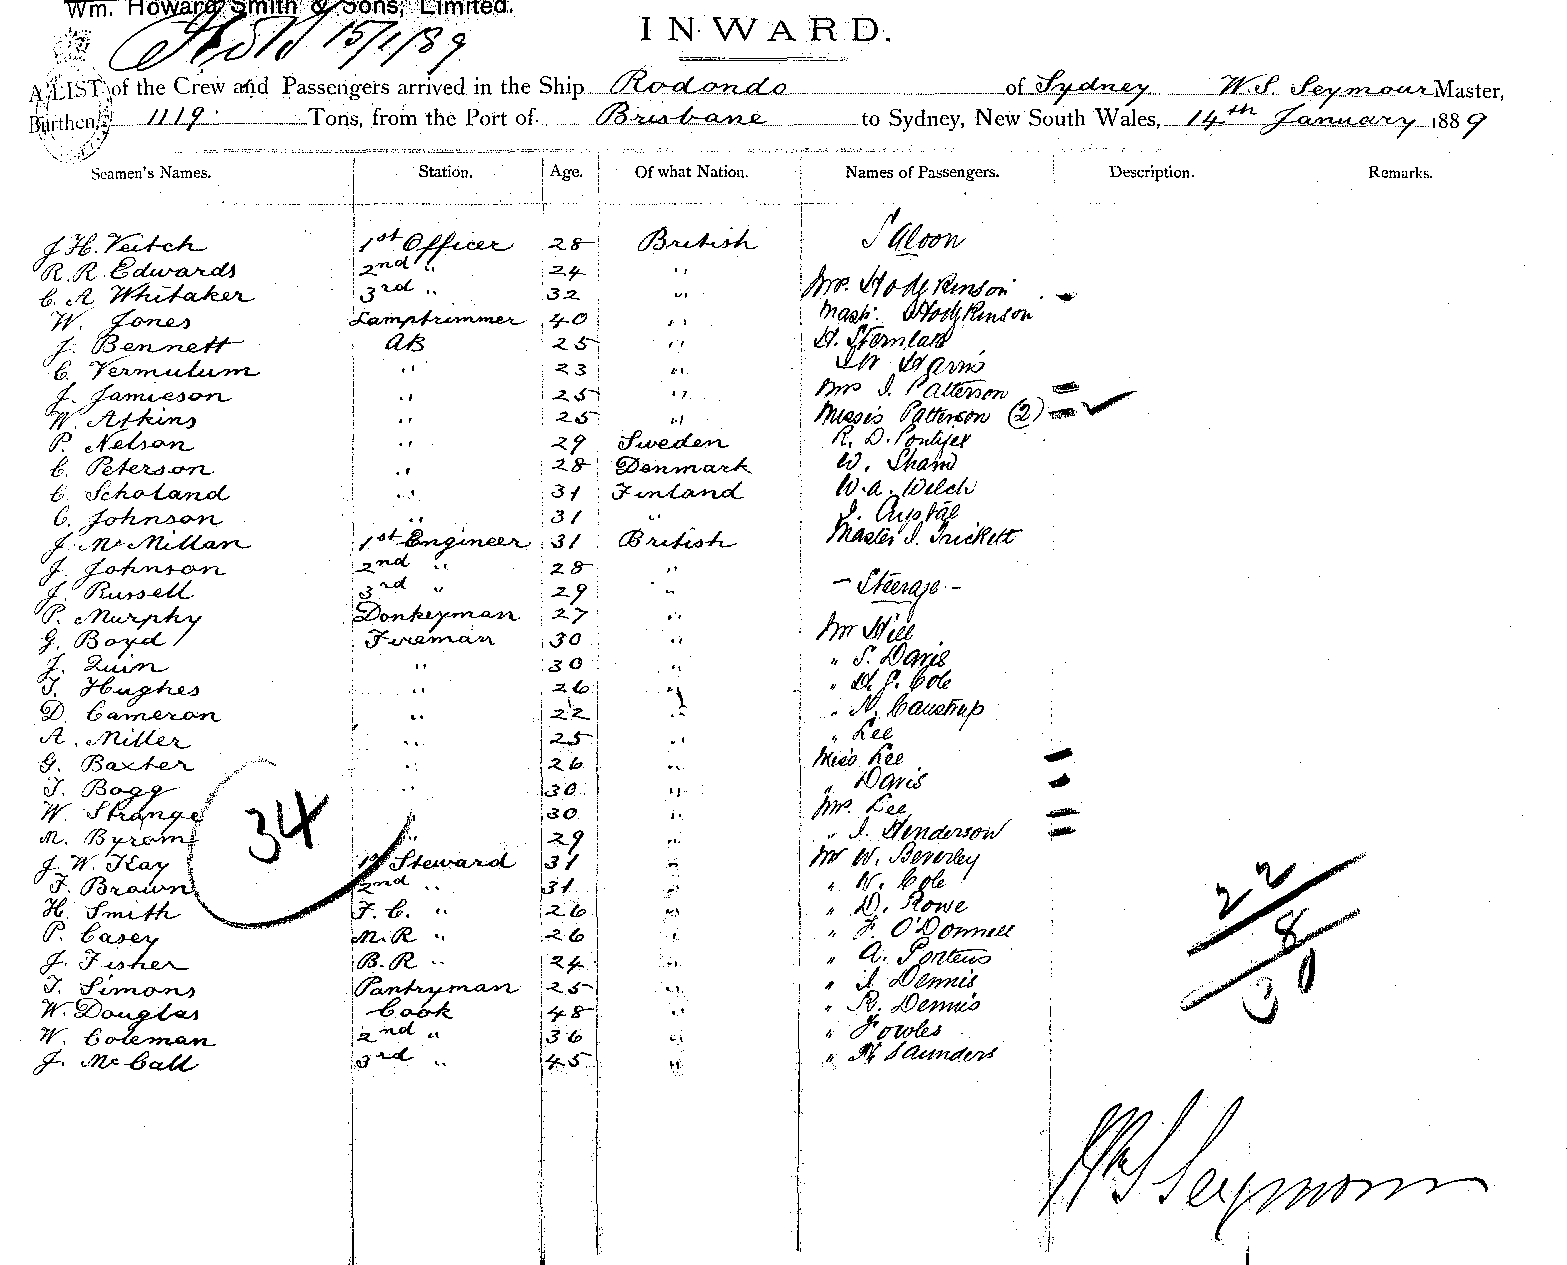 Wm. Howard Smith & Sons, Limited.
15/1/89
INWARD.
A LIST of the Crew and Passengers arrived in the Ship Rodondo of Sydney W.S. Seymour Master,
Burthen, 1119 Tons, from the Port of Brisbane to Sydney, New South Wales, 14th January 1889
Seamen's Names. Station. Age. Of what Nation. Names of Passengers. Description. Remarks.
J H. Veitch 1st Officer 28 British
R. R. Edwards 2nd " 24 "
C. A Whitaker 3rd " 32 "
W. Jones Lamptrimmer 40 "
J. Bennett AB 25 "
C. Vermulum " 23 "
J. Jamieson " 25 "
W. Atkins " 25 "
P. Nelson " 29 Sweden
C. Peterson " 28 Denmark
C. Scholand " 31 Finland
C. Johnson " 31 "
J. McMillan 1st Engineer 31 British
J. Johnson 2nd " 28 "
J. Russell 3rd " 29 "
P. Murphy Donkeyman 27 "
G. Boyd Fireman 30 "
J. Quin " 30 "
T. Hughes " 26 "
D. Cameron " 22 "
A. Miller " 25 "
G. Baxter " 26 "
T. Bogg " 30 "
W. Strange 30 "
M. Byrom " 29 "
J. W. Kay 1st Steward 31 "
F. Brown 2nd " 31 "
H. Smith F. C. " 26 "
P. Casey M. R " 26 "
J. Fisher B. R " 24 "
T. Simons Pantryman 25 "
W. Douglas Cook 48 "
W. Coleman 2nd " 36 "
J. McCall 3rd " 45 "
34
Saloon
Mrs. Hodgkinson
Mast. Hodgkinson
H.
Harris
Mrs J. Patterson
Misses Patterson (2)
R. D. Pontifex
W. Shand
W. A. Welch
J. Crystal
Master J. Trickett
- Steerage -
Mr Hill
" S. Davis
" H. J. Cole
" N. Caustrup
" Lee
Miss Lee
" Davis
Mrs. Lee
" J. Henderson
Mr W. Beverley
" W. Cole
" D. Rowe
" F. O'Donnell
" A. Porteus
" J. Dennis
" R. Dennis
" Fowles
" H. Saunders
22
8
30
Wm S Seymour